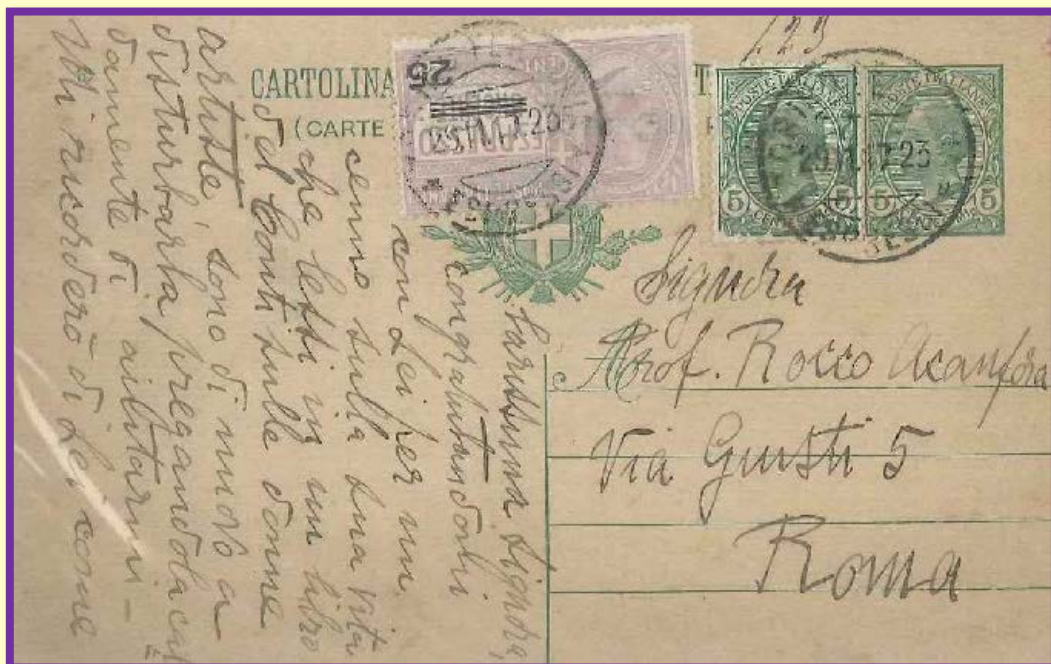 223
CARTOLINA
(CARTE
25
POSTE ITALIANE
POSTE ITALIANE
5 5
5 5
Signora
Prof. Rocco Acanfora
Via Giusti 5
Roma
Carissima Signora,
congratulandomi
con Lei per un
cenno sulla sua vita
che lessi in un libro
del Conti sulle donne
artiste, sono di nuovo a
disturbarla pregandola
damente di aiutarmi -
Mi ricorderò di Lei come